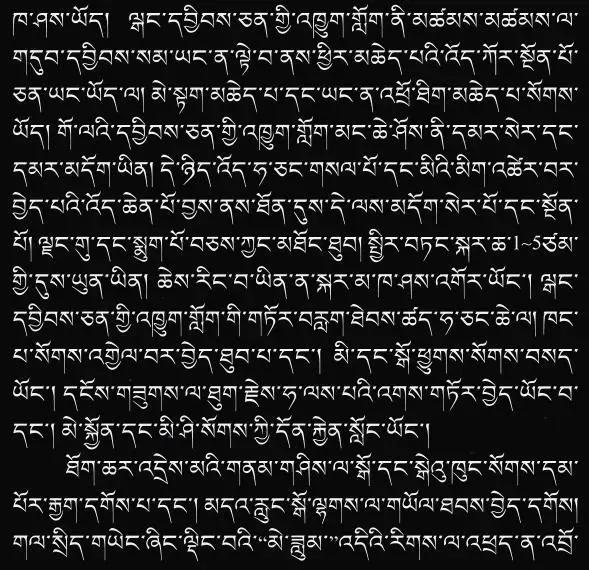 ཁ་ཤས་ཡོད། ལྒང་དབྱིབས་ཅན་གྱི་འཁྱུག་གློག་ནི་མཚམས་མཚམས་ལ་
གདུབ་དབྱིབས་སམ་ཡང་ན་ལྟེ་བ་ནས་ཕྱིར་མཆེད་པའི་འོད་ཀོར་སྔོན་པོ་
ཅན་ཡང་ཡོད་ལ། མེ་སྟག་མཆེད་པ་དང་ཡང་ན་འཕྲོ་ཐིག་མཆེད་པ་སོགས་
ཡོད། གོ་ལའི་དབྱིབས་ཅན་གྱི་འཁྱུག་གློག་མང་ཆེ་ཤོས་ནི་དམར་སེར་དང་
དམར་མདོག་ཡིན། དེ་ཉིད་འོད་ཧ་ཅང་གསལ་པོ་དང་མིའི་མིག་འཚེར་བར་
བྱེད་པའི་འོད་ཆེན་པོ་བྱས་ནས་ཐོན་དུས་དེ་ལས་མདོག་སེར་པོ་དང་སྔོན་
པོ། ལྗང་གུ་དང་སྨུག་པོ་བཅས་ཀྱང་མཐོང་ཐུབ། སྤྱིར་བཏང་སྐར་ཆ་1~5ཙམ་
གྱི་དུས་ཡུན་ཡིན། ཆེས་རིང་བ་ཡིན་ན་སྐར་མ་ཁ་ཤས་འགོར་ཡོང་། ལྒང་
དབྱིབས་ཅན་གྱི་འཁྱུག་གློག་གི་གཏོར་བརླག་ཐེབས་ཚད་ཧ་ཅང་ཆེ་ལ། ཁང་
པ་སོགས་འགྱེལ་བར་བྱེད་ཐུབ་པ་དང་། མི་དང་སྒོ་ཕྱུགས་སོགས་བསད་
ཡོང་། དངོས་གཟུགས་ལ་ཐུག་རྗེས་ཧ་ལས་པའི་འགས་གཏོར་བྱེད་ཡོང་བ་
དང་། མེ་སྐྱོན་དང་མི་ཤི་སོགས་ཀྱི་དོན་རྐྱེན་སློང་ཡོང་།
ཐོག་ཆར་འདྲེས་མའི་གནམ་གཤིས་ལ་སྒོ་དང་སྒེའུ་ཁུང་སོགས་དམ་
པོར་རྒྱག་དགོས་པ་དང་། མདའ་རླུང་སྒོ་ལྷགས་ལ་གཡོལ་ཐབས་བྱེད་དགོས།
གལ་སྲིད་གཡེང་ཞིང་ལྡིང་བའི་“མེ་ཟླུམ་”འདིའི་རིགས་ལ་འཕྲད་ན་འབྲོ་